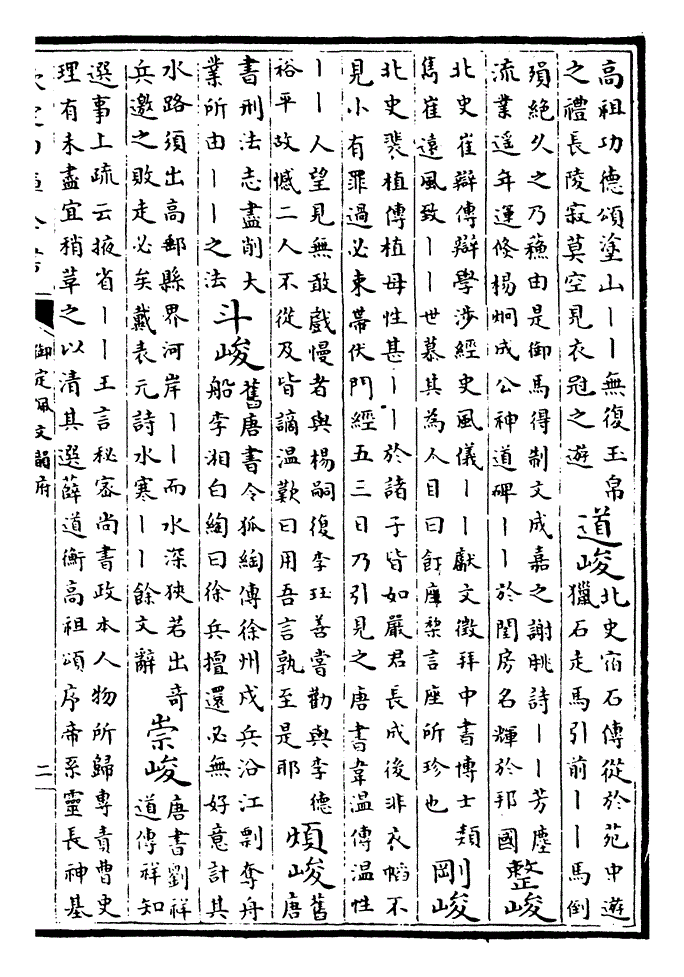 高祖功德頌塗山丨丨無復玉帛
之禮長陵寂莫空見衣冠之遊
道峻
北史宿石傳從於苑中遊
獵石走馬引前丨丨馬倒
殞絕久之乃蘓由是御馬得制文成嘉之謝朓詩丨丨芳塵
流業遥年運倏楊烱成公神道碑丨丨於閨房名輝於邦國
整峻
北史崔辯傳辯學涉經史風儀丨丨獻文徴拜中書博士類
雋崔遠風致丨丨世慕其為人目曰飣座棃言座所珍也
剛峻
北史裴植傳植母性甚丨丨於諸子皆如嚴君長成後非衣㡌不
見小有罪過必束帶伏門經五三日乃引見之唐書韋温傳温性
丨丨人望見無敢戲慢者與楊嗣復李珏善嘗勸與李德
裕平故憾二人不從及皆謫温歎曰用吾言孰至是耶
煩峻
舊
唐
書刑法志盡削大
業所由丨丨之法
斗峻
舊唐書令狐綯傳徐州戍兵沿江剽奪舟
船李湘白綯曰徐兵擅還必無好意計其
水路須出高郵縣界河岸丨丨而水深狹若出奇
兵邀之敗走必矣戴表元詩水寒丨丨餘文辭
崇峻
唐書劉祥
道傳祥知
選事上疏云掖省丨丨王言秘密尚書政本人物所歸專責曹史
理有未盡宜稍革之以清其選薛道衡高祖頌序帝系靈長神基
御定佩文韻府
二